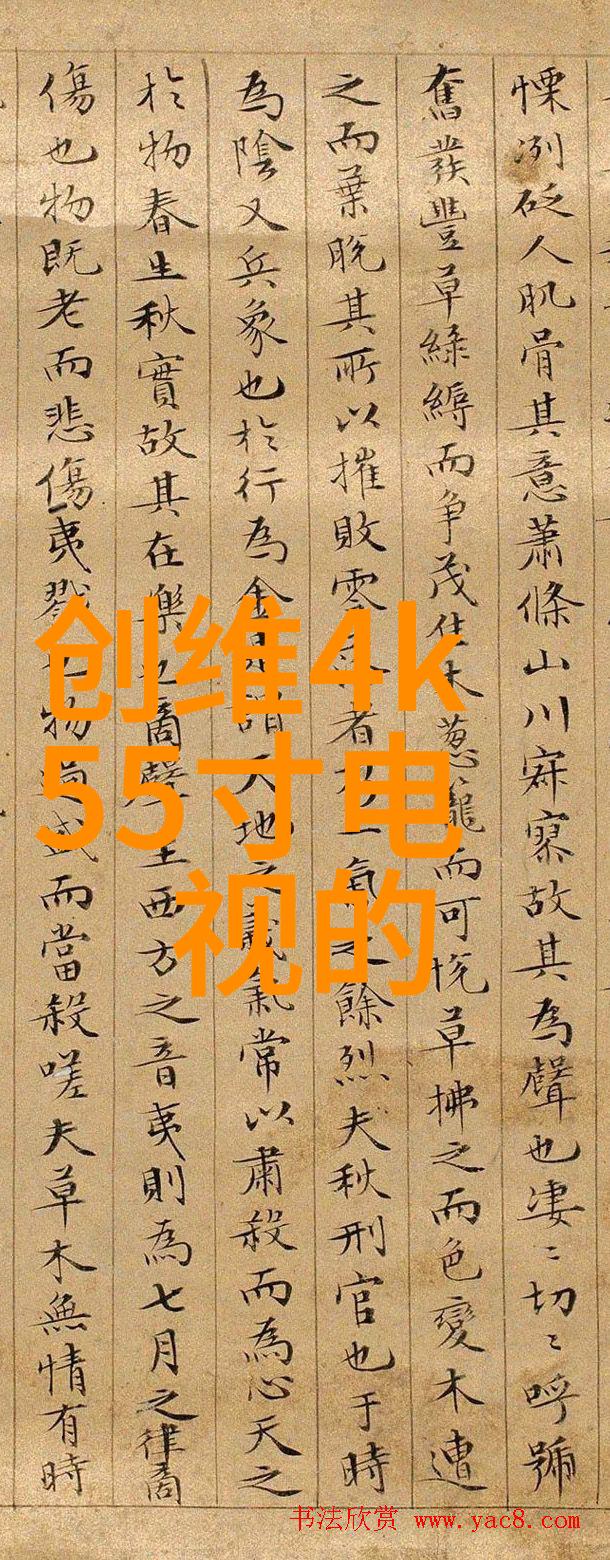 慄冽砭人肌骨其意蕭條山川寂寥故其為聲也凄〻切〻呼號
奮發豐草綠縟而争茂佳木葱蘢而可悅草拂之而色變木遭
之而葉脫其所以摧敗零者一氣之餘烈夫秋刑官也于時
為陰又兵象也於行為金是謂天地之義氣常以肅殺而為心天之
於物春生秋實故其在樂也商聲主西方之音夷則為七月之律商
傷也物既老而悲傷夷戮也物過盛而當殺嗟夫草木無情有時
创维4k
55寸电
视的
书法欣赏 www.yac8.com